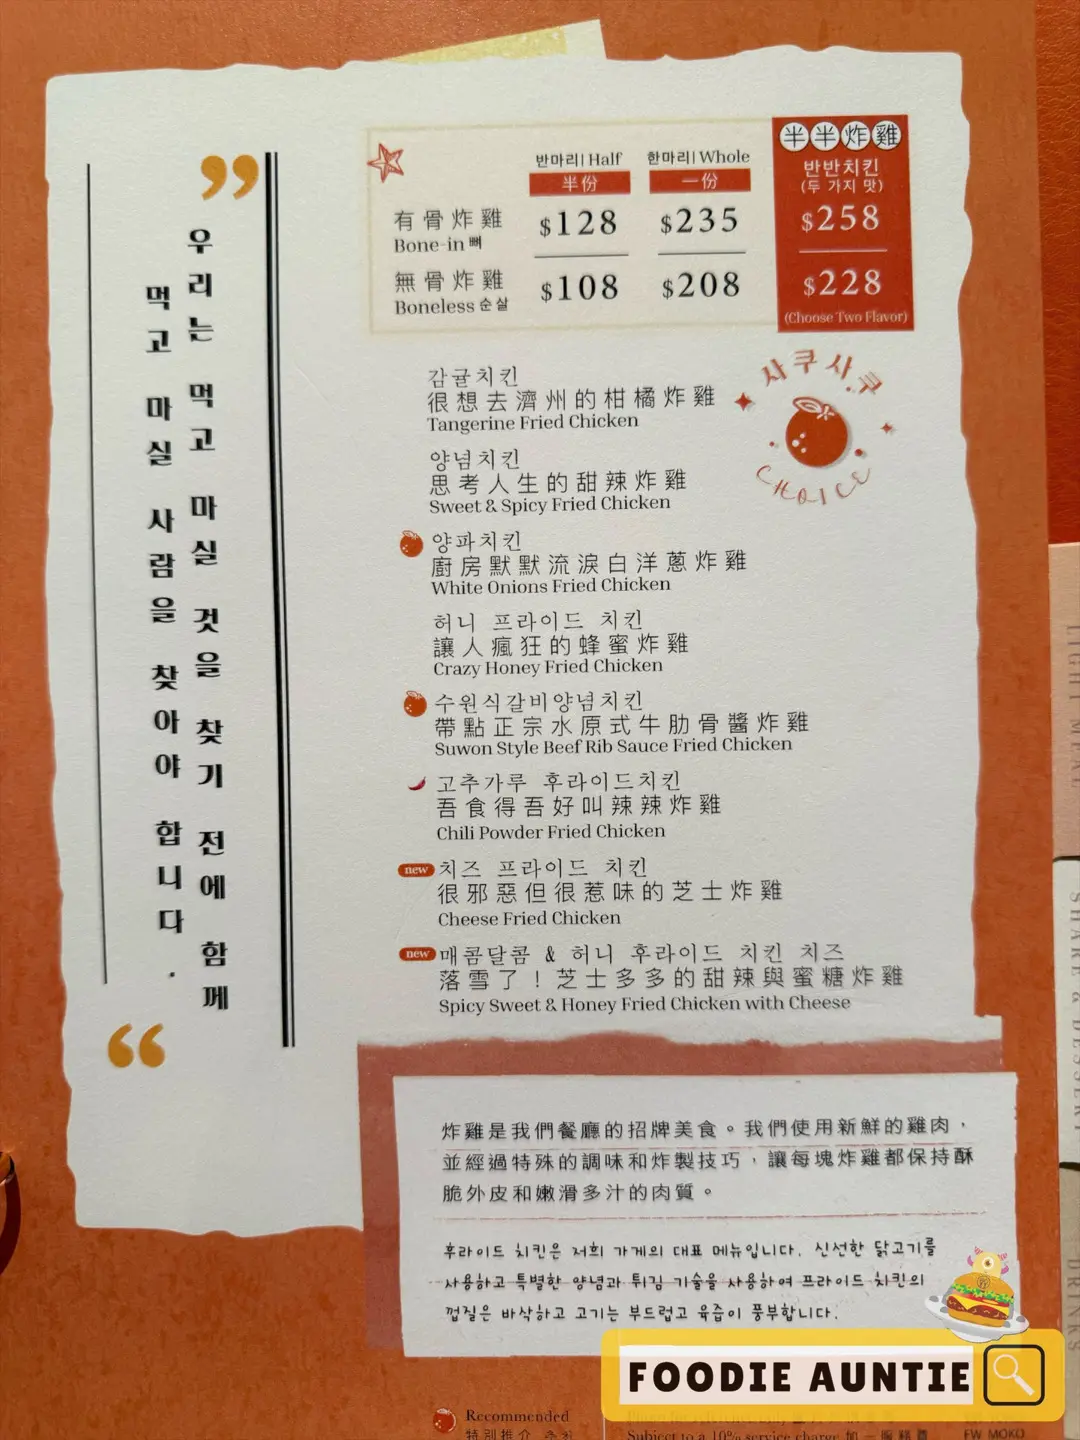 우리는 먹고 마실 것을 찾기 전에 함께
먹고 마실 사람을 찾아야 합니다.
반마리 | Half
半份
한마리 | Whole
一份
半半炸雞
반반치킨
(두 가지 맛)
有骨炸雞
Bone-in 뼈
$128
$235
$258
無骨炸雞
Boneless 순살
$108
$208
$228
(Choose Two Flavor)
사쿠사쿠
CHOICE
감귤치킨
很想去濟州的柑橘炸雞
Tangerine Fried Chicken
양념치킨
思考人生的甜辣炸雞
Sweet & Spicy Fried Chicken
양파치킨
廚房默默流淚白洋蔥炸雞
White Onions Fried Chicken
허니 프라이드 치킨
讓人瘋狂的蜂蜜炸雞
Crazy Honey Fried Chicken
수원식갈비양념치킨
帶點正宗水原式牛肋骨醬炸雞
Suwon Style Beef Rib Sauce Fried Chicken
고추가루 후라이드치킨
吾食得吾好叫辣辣炸雞
Chili Powder Fried Chicken
new 치즈 프라이드 치킨
很邪惡但很惹味的芝士炸雞
Cheese Fried Chicken
new 매콤달콤 & 허니 후라이드 치킨 치즈
落雪了！芝士多多的甜辣與蜜糖炸雞
Spicy Sweet & Honey Fried Chicken with Cheese
炸雞是我們餐廳的招牌美食。我們使用新鮮的雞肉，
並經過特殊的調味和炸製技巧，讓每塊炸雞都保持酥
脆外皮和嫩滑多汁的肉質。
후라이드 치킨은 저희 가게의 대표 메뉴입니다. 신선한 닭고기를
사용하고 특별한 양념과 튀김 기술을 사용하여 프라이드 치킨의
껍질은 바삭하고 고기는 부드럽고 육즙이 풍부합니다.
FOODIE AUNTIE
Recommended
特別推介 추천
Subject to a 10% service charge 加一服務費
FW MOKO
LIGHT MEAL
SHARE & DESSERT
DRINKS